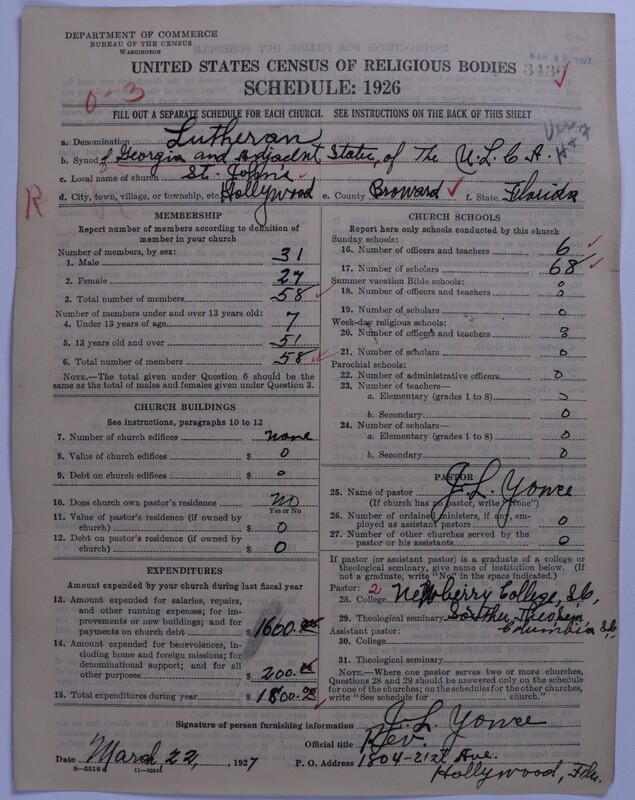 DEPARTMENT OF COMMERCE
BUREAU OF THE CENSUS
WASHINGTON
UNITED STATES CENSUS OF RELIGIOUS BODIES
SCHEDULE: 1926
0-3
FILL OUT A SEPARATE SCHEDULE FOR EACH CHURCH. SEE INSTRUCTIONS ON THE BACK OF THIS SHEET
a. Denomination Lutheran
b. Synod of Georgia and Adjacent States, of The U.L.C.A.
c. Local name of church St. Johns
d. City, town, village, or township, etc. Hollywood e. County Broward f. State Florida
R
MEMBERSHIP
Report number of members according to definition of member in your church
Number of members, by sex:
1. Male 31
2. Female 27
3. Total number of members 58
Number of members under and over 13 years old:
4. Under 13 years of age 7
5. 13 years old and over 51
6. Total number of members 58
NOTE.—The total given under Question 6 should be the
same as the total of males and females given under Question 3.
CHURCH BUILDINGS
See instructions, paragraphs 10 to 12
7. Number of church edifices none
8. Value of church edifices $ 0
9. Debt on church edifices $ 0
10. Does church own pastor's residence No
Yes or No
11. Value of pastor's residence (if owned by
church) $ 0
12. Debt on pastor's residence (if owned by
church) $ 0
EXPENDITURES
Amount expended by your church during last fiscal year
13. Amount expended for salaries, repairs,
and other running expenses; for im-
provements or new buildings; and for
payments on church debt $ 1600.00
14. Amount expended for benevolences, in-
cluding home and foreign missions; for
denominational support; and for all
other purposes $ 200.00
15. Total expenditures during year $ 1800.00
CHURCH SCHOOLS
Report here only schools conducted by this church
Sunday schools:
16. Number of officers and teachers 6
17. Number of scholars 68
Summer vacation Bible schools:
18. Number of officers and teachers 0
19. Number of scholars 0
Week-day religious schools:
20. Number of officers and teachers
21. Number of scholars 0
Parochial schools:
22. Number of administrative officers 0
23. Number of teachers—
a. Elementary (grades 1 to 8)
b. Secondary 0
24. Number of scholars—
a. Elementary (grades 1 to 8) 0
b. Secondary 0
PASTOR
25. Name of pastor J. L. Yonce
(If church has no pastor, write "None")
26. Number of ordained ministers, if any, em-
ployed as assistant pastors 0
27. Number of other churches served by the
pastor or his assistants 0
If pastor (or assistant pastor) is a graduate of a college or
theological seminary, give name of institution below. (If
not a graduate, write "No" in the space indicated.)
Pastor: 2
28. College Newberry College, S.C.
29. Theological seminary Souther Theo Sem.
Columbia S.C.
Assistant pastor:
30. College
31. Theological seminary
NOTE.—Where one pastor serves two or more churches,
Questions 28 and 29 should be answered only on the schedule
for one of the churches; on the schedules for the other churches,
write "See schedule for church."
Signature of person furnishing information J. L. Yonce
Official title Rev.
Date March 22, 1927 P. O. Address 1804-21st Ave.
Hollywood, Fla.